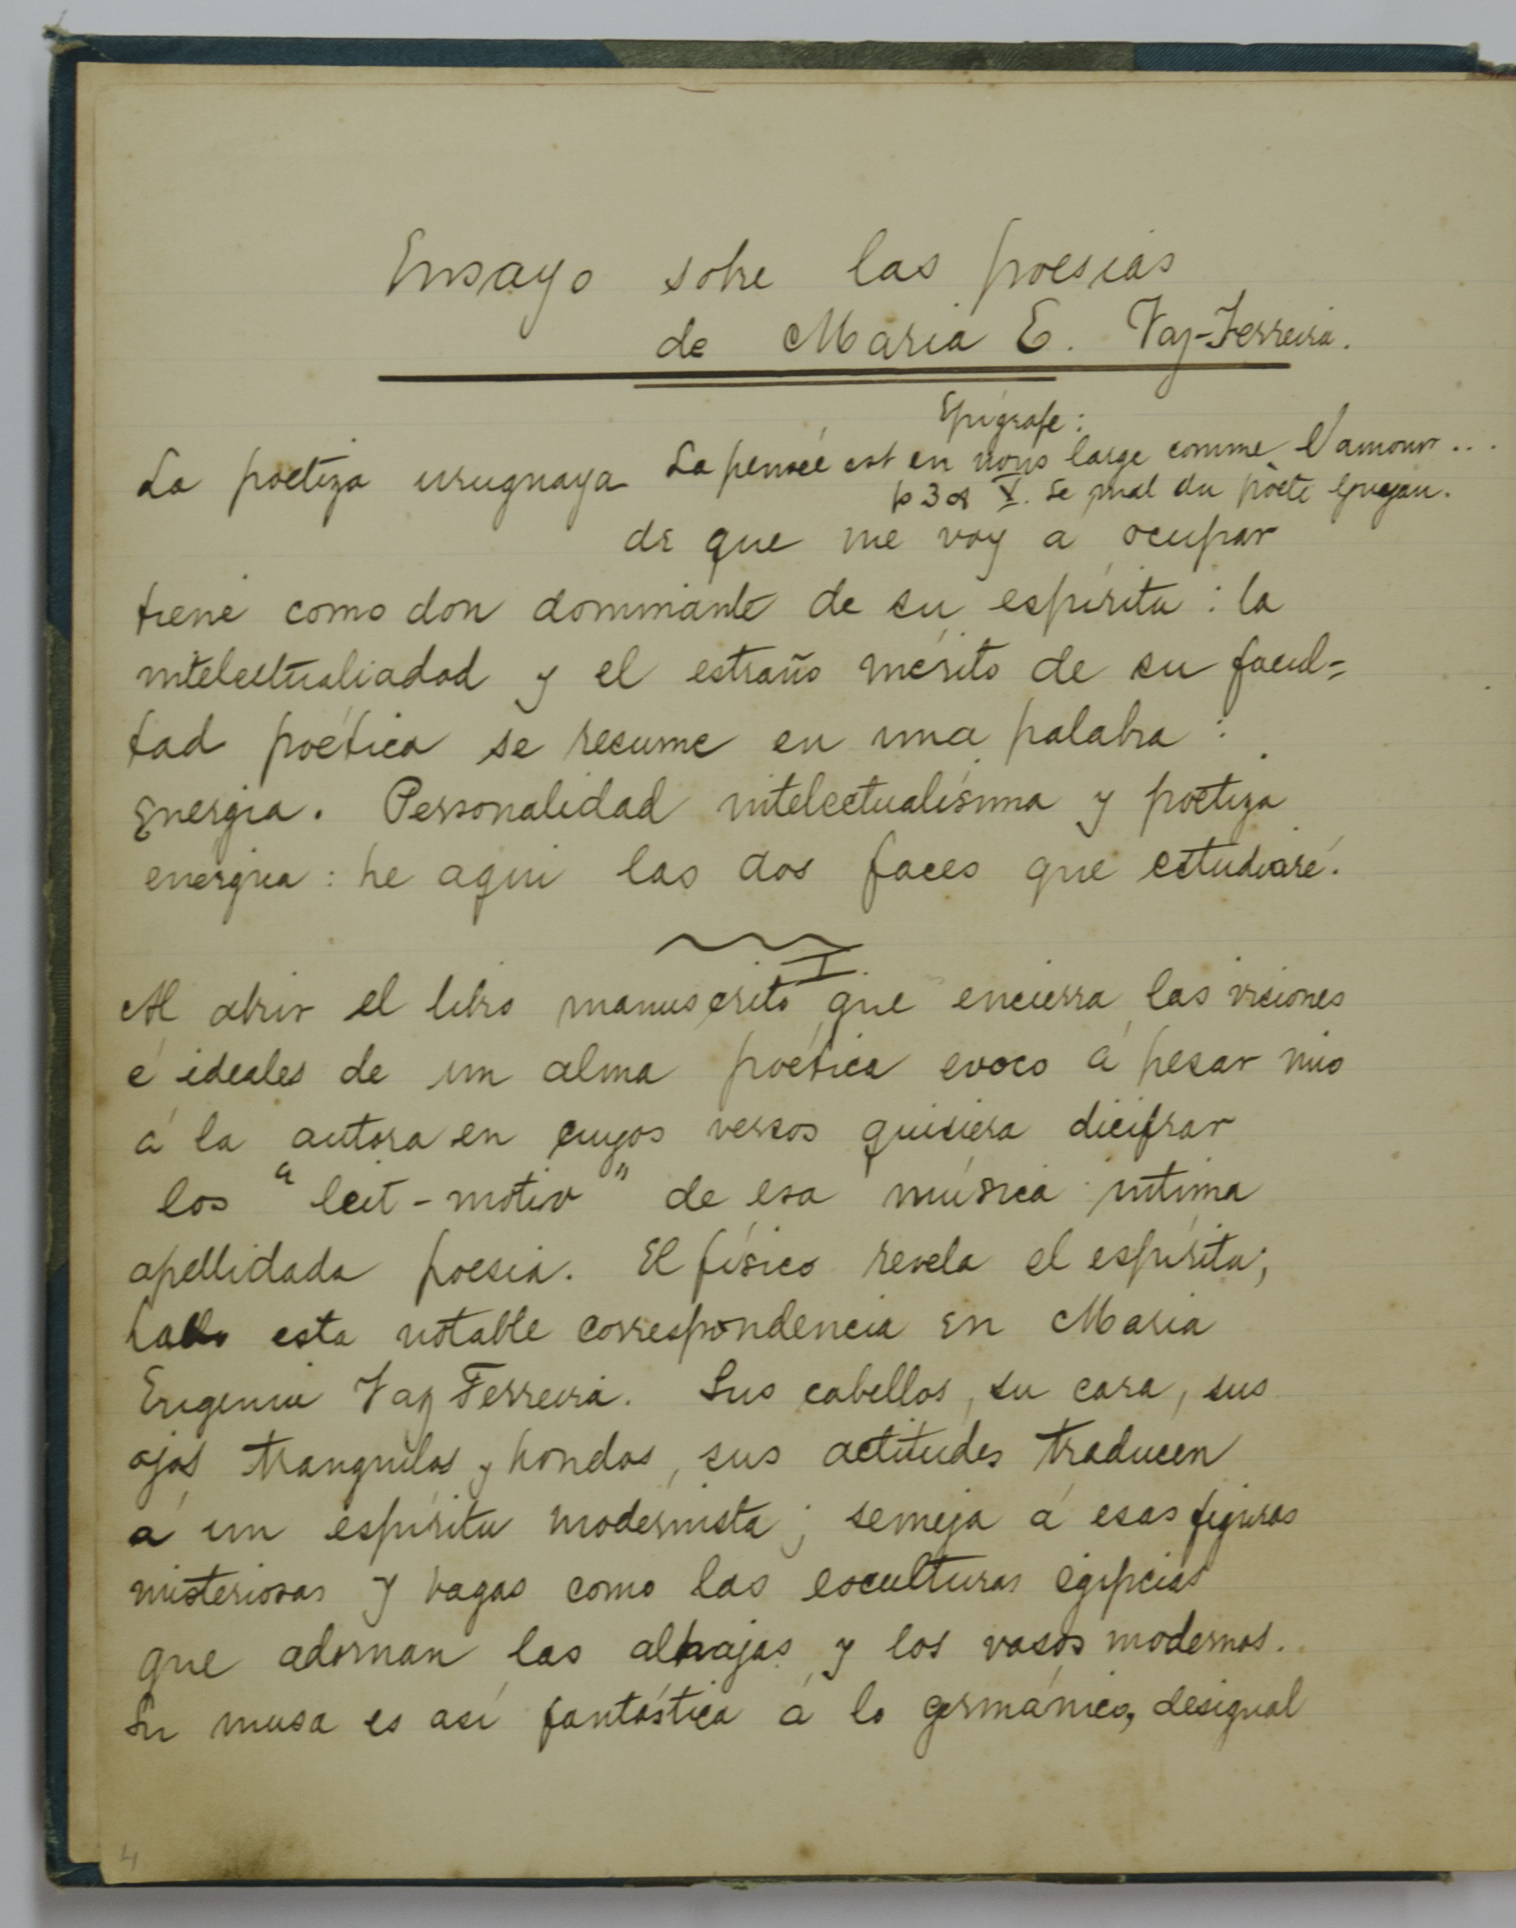 Ensayo sobre las poesias
de Maria E. Vaz-Ferreira.
Epígrafe:
La pensée est en nous large comme l'amour...
V. Le mal du poète Guyau.
La poetiza uruguaya
de que me voy a ocupar
tiene como don dominante de su espíritu : la
intelectualiadad y el estraño mérito de su facul=
tad poética se resume en una palabra :
Energia. Personalidad intelectualísima y poetiza
energica : he aqui las dos faces que estudiaré.
I.
Al abrir el libro manuscrito que encierra las visiones
é ideales de un alma poética evoco á pesar mio
á la autora en cuyos versos quisiera dicifrar
los "leit-motiv" de esa música intima
apellidada poesia. El físico revela el espíritu;
hallo esta notable correspondencia en Maria
Eugenia Vaz Ferreira. Sus cabellos, su cara, sus
ojos tranquilos y hondos, sus actitudes traducen
á un espíritu modernista ; semeja á esas figuras
misteriosas y vagas como las esculturas egipcias
que adornan las alhajas y los vasos modernos.
Su musa es así fantástica á lo germánico, desigual
4